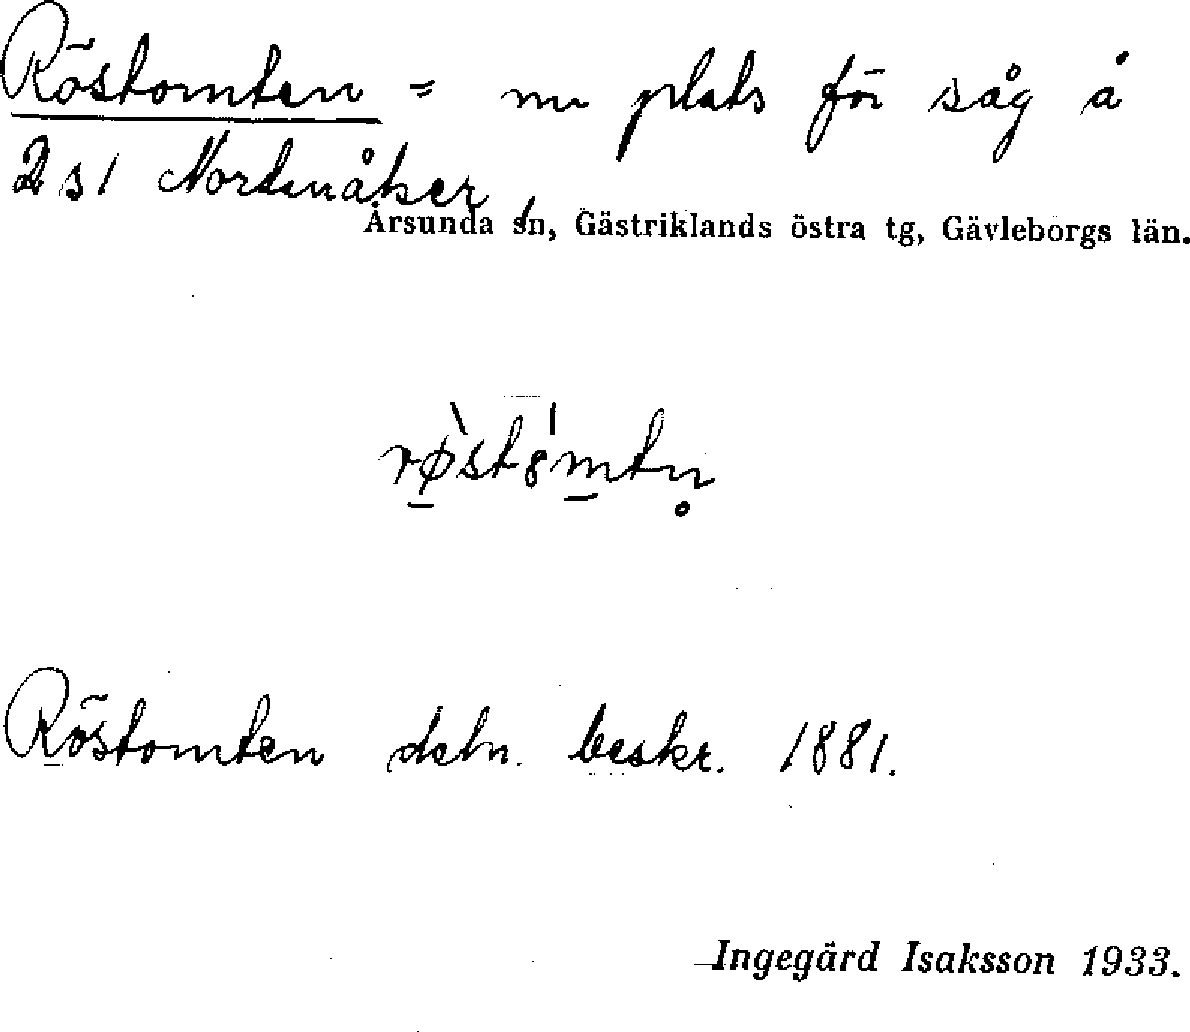 Röstomten = nu plats för såg å
2 s1 Nordanåker
Årsunda sn, Gästriklands östra tg, Gävleborgs län.
røstomtn̥
Röstomten deln. beskr. 1881.
Ingegärd Isaksson 1933.